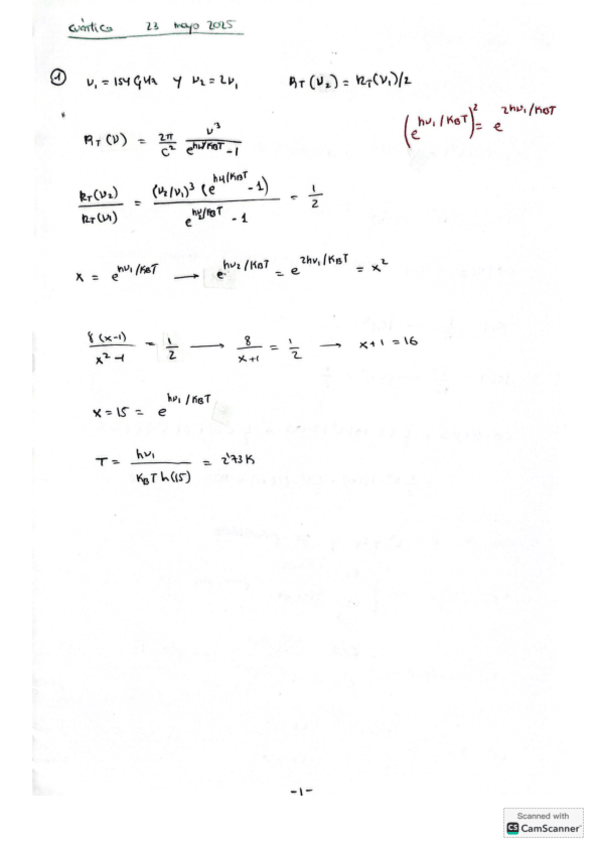 cuántica 23 mayo 2025
① ν₁ = 154 GHz y ν₂ = 2ν₁ R_T(ν₂) = R_T(ν₁)/2
(e^{hν₁/K_BT})² = e^{2hν₁/K_BT}
R_T(ν) = 2π/c² ν³/(e^{hν/K_BT} - 1)
R_T(ν₂)/R_T(ν₁) = (ν₂/ν₁)³ (e^{hν/K_BT} - 1)/(e^{hν/K_BT} - 1) = 1/2
x = e^{hν₁/K_BT} ⟶ e^{hν₂/K_BT} = e^{2hν₁/K_BT} = x²
8(x-1)/(x²-1) = 1/2 ⟶ 8/(x+1) = 1/2 → x+1 = 16
x = 15 = e^{hν₁/K_BT}
T = hν₁/(K_B T ln(15)) = 2'73 K
-1-
Scanned with
CS CamScanner